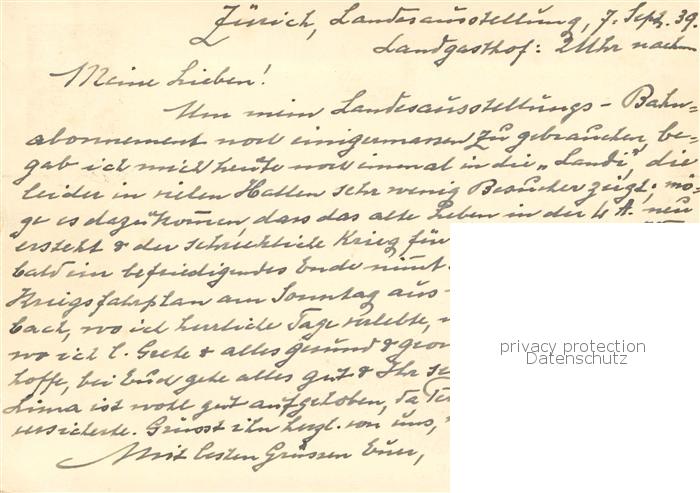 Zürich, Landesausstellung, 7. Sept. 39.
Landgasthof: 2 Uhr nachm
Meine Lieben!
Um mein Landesausstellungs-Bahn-
abonnement noch einigermassen zu gebrauchen, be-
gab ich mich heute noch einmal in die „Landi", die
leider in vielen Hallen sehr wenig Besucher zeigt; mö-
ge es dazu kommen, dass das alte Leben in der L. A. neu
ersteht & der schreckliche Krieg für
bald ein befriedigendes Ende nimt
Kriegsfahrplan am Sonntag aus-
bach, wo ich herrliche Tage verlebte,
wo ich l. Grete & alles gesund &
hoffe, bei Euch gehe alles gut & Ihr
ist wohl gut aufgehoben, da
versicherte. Grüsst ihn herzl. von uns,
Mit besten Grüssen Euer,
privacy protection
Datenschutz